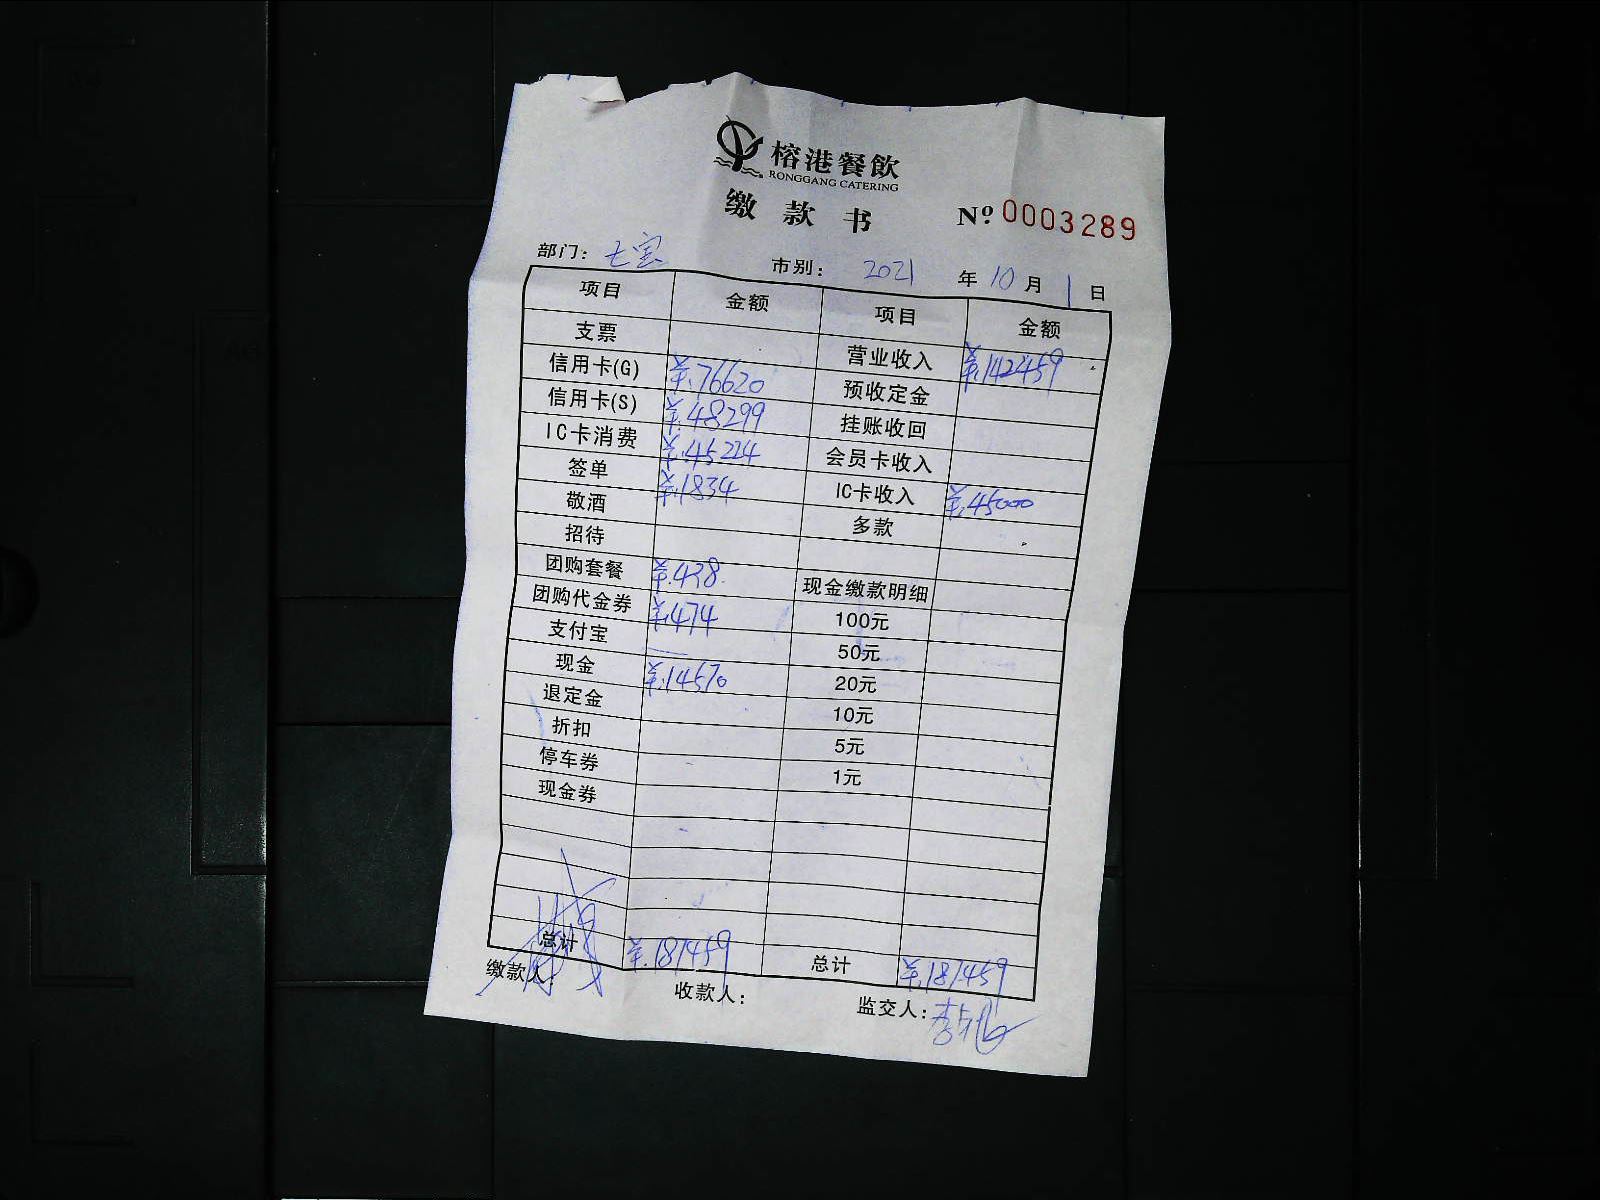 榕港餐飲
RONGGANG CATERING
缴款书 Nº 0003289
部门：七宝 市别： 2021 年 10 月 1 日
项目 金额 项目 金额
支票 营业收入 ¥.142459
信用卡(G) ¥.76620 预收定金
信用卡(S) ¥.48299 挂账收回
IC卡消费 ¥.45224 会员卡收入
签单 ¥.1834 IC卡收入 ¥.45000
敬酒 多款
招待
团购套餐 ¥.438 现金缴款明细
团购代金券 ¥.474 100元
支付宝 50元
现金 ¥.14570 20元
退定金 10元
折扣 5元
停车券 1元
现金券
总计 ¥.187459 总计 ¥.187459
缴款人： 收款人： 监交人：